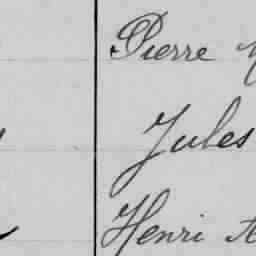 Pierre
Jules
Henri